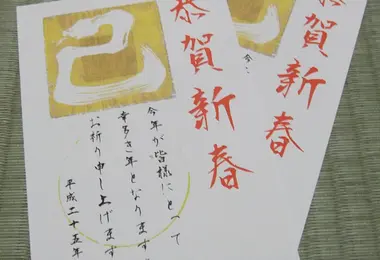 恭賀新春
巳
今年が皆様にとって
幸多き年となります
お祈り申し上げます
平成二十五年
賀新春
今